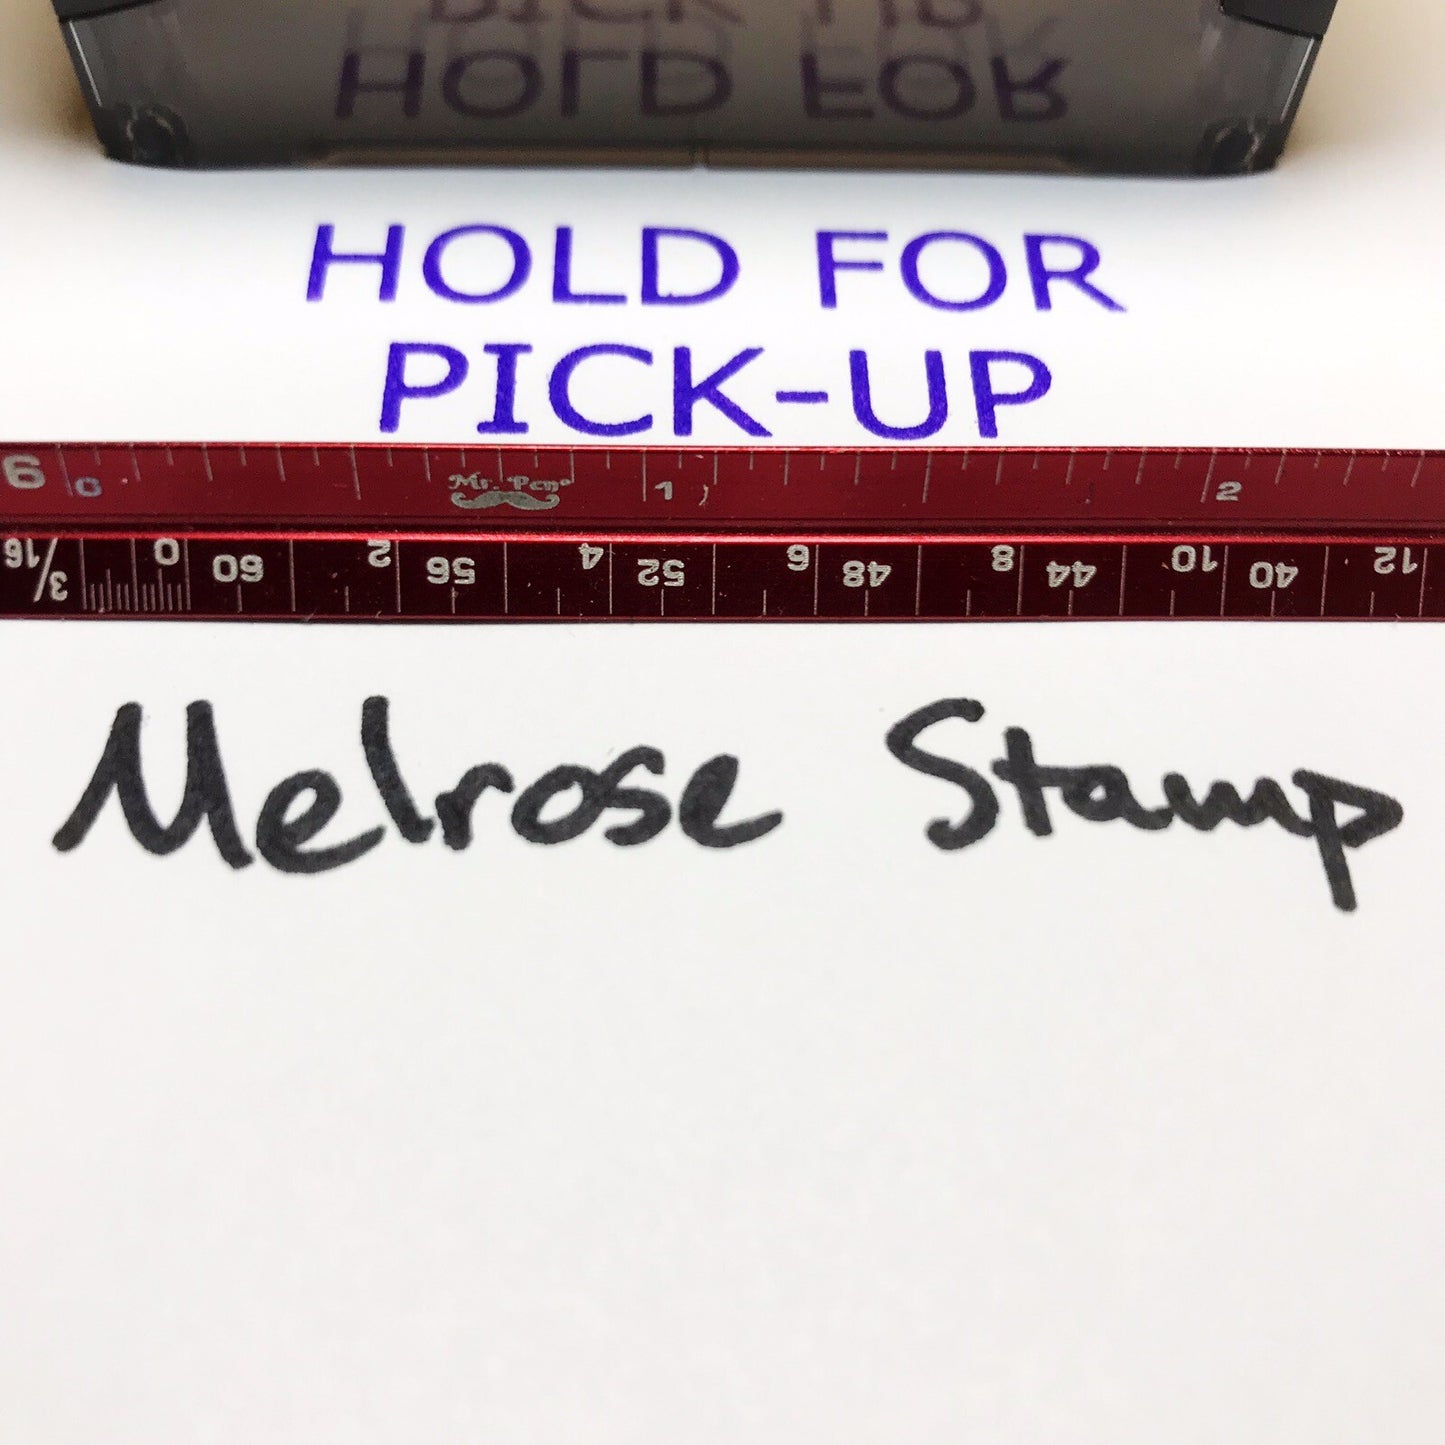 PICK UP
HOLD FOR
HOLD FOR
PICK-UP
6 0 Mr. Pen® 1 2
3/16 0 60 2 56 4 52 6 48 8 44 10 40 12
Melrose Stamp